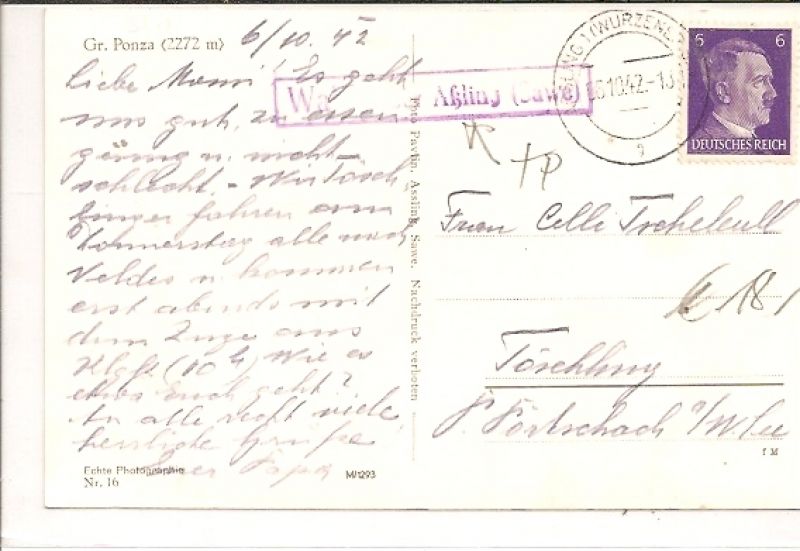 Gr. Ponza (2272 m)
6/10. 42
Liebe Mama! Es geht
uns gut, zu essen
genug u. nicht
schlecht. - Wir Tösch
linger fahren am
Donnerstag alle nach
Veldes u. kommen
erst abends mit
dem Zuge aus
Klgft. (10 h) Wie es
Euch geht?
An alle recht viele
herzliche Grüße
Euer Papa
Echte Photographie
Nr. 16
M/1293
Foto Pavlin, Assling, Sawe. Nachdruck verboten
Aßling (Sawe)
(WURZEN
10.42.-1
9
6 6
DEUTSCHES REICH
Frau Celli
Töschling
P. Pörtschach a/W. See